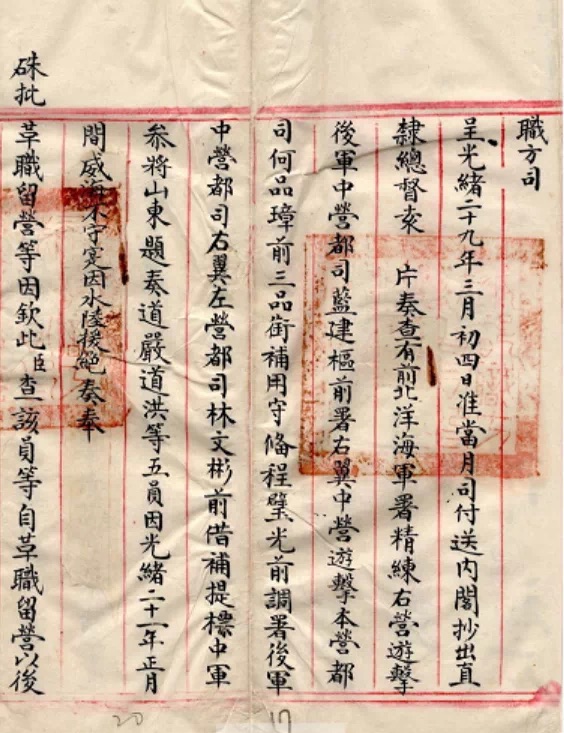 職方司
呈光緒二十九年三月初四日准當月司付送內閣抄出直
隸總督袁 片奏查有前北洋海軍署精練右營遊擊
後軍中營都司藍建樞前署右翼中營遊擊本營都
司何品璋前三品銜補用守備程璧光前調署後軍
中營都司右翼左營都司林文彬前借補提標中軍
參將山東題奏道嚴道洪等五員因光緒二十一年正月
間威海不守寔因水陸援絕奏奉
硃批革職留營等因欽此臣查該員等自革職留營以後
17
20